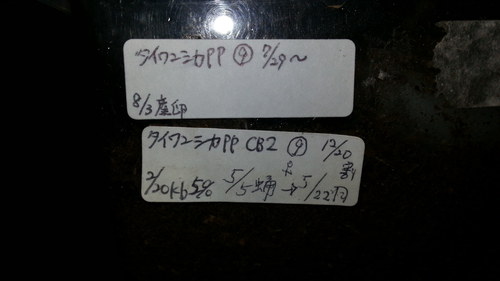 タイワンシカPP ⑨ 7/29〜
8/3産卵
タイワンシカPP CB2 ⑨ 12/20
割
2/20Kb5% 5/5蛹 → 5/22羽